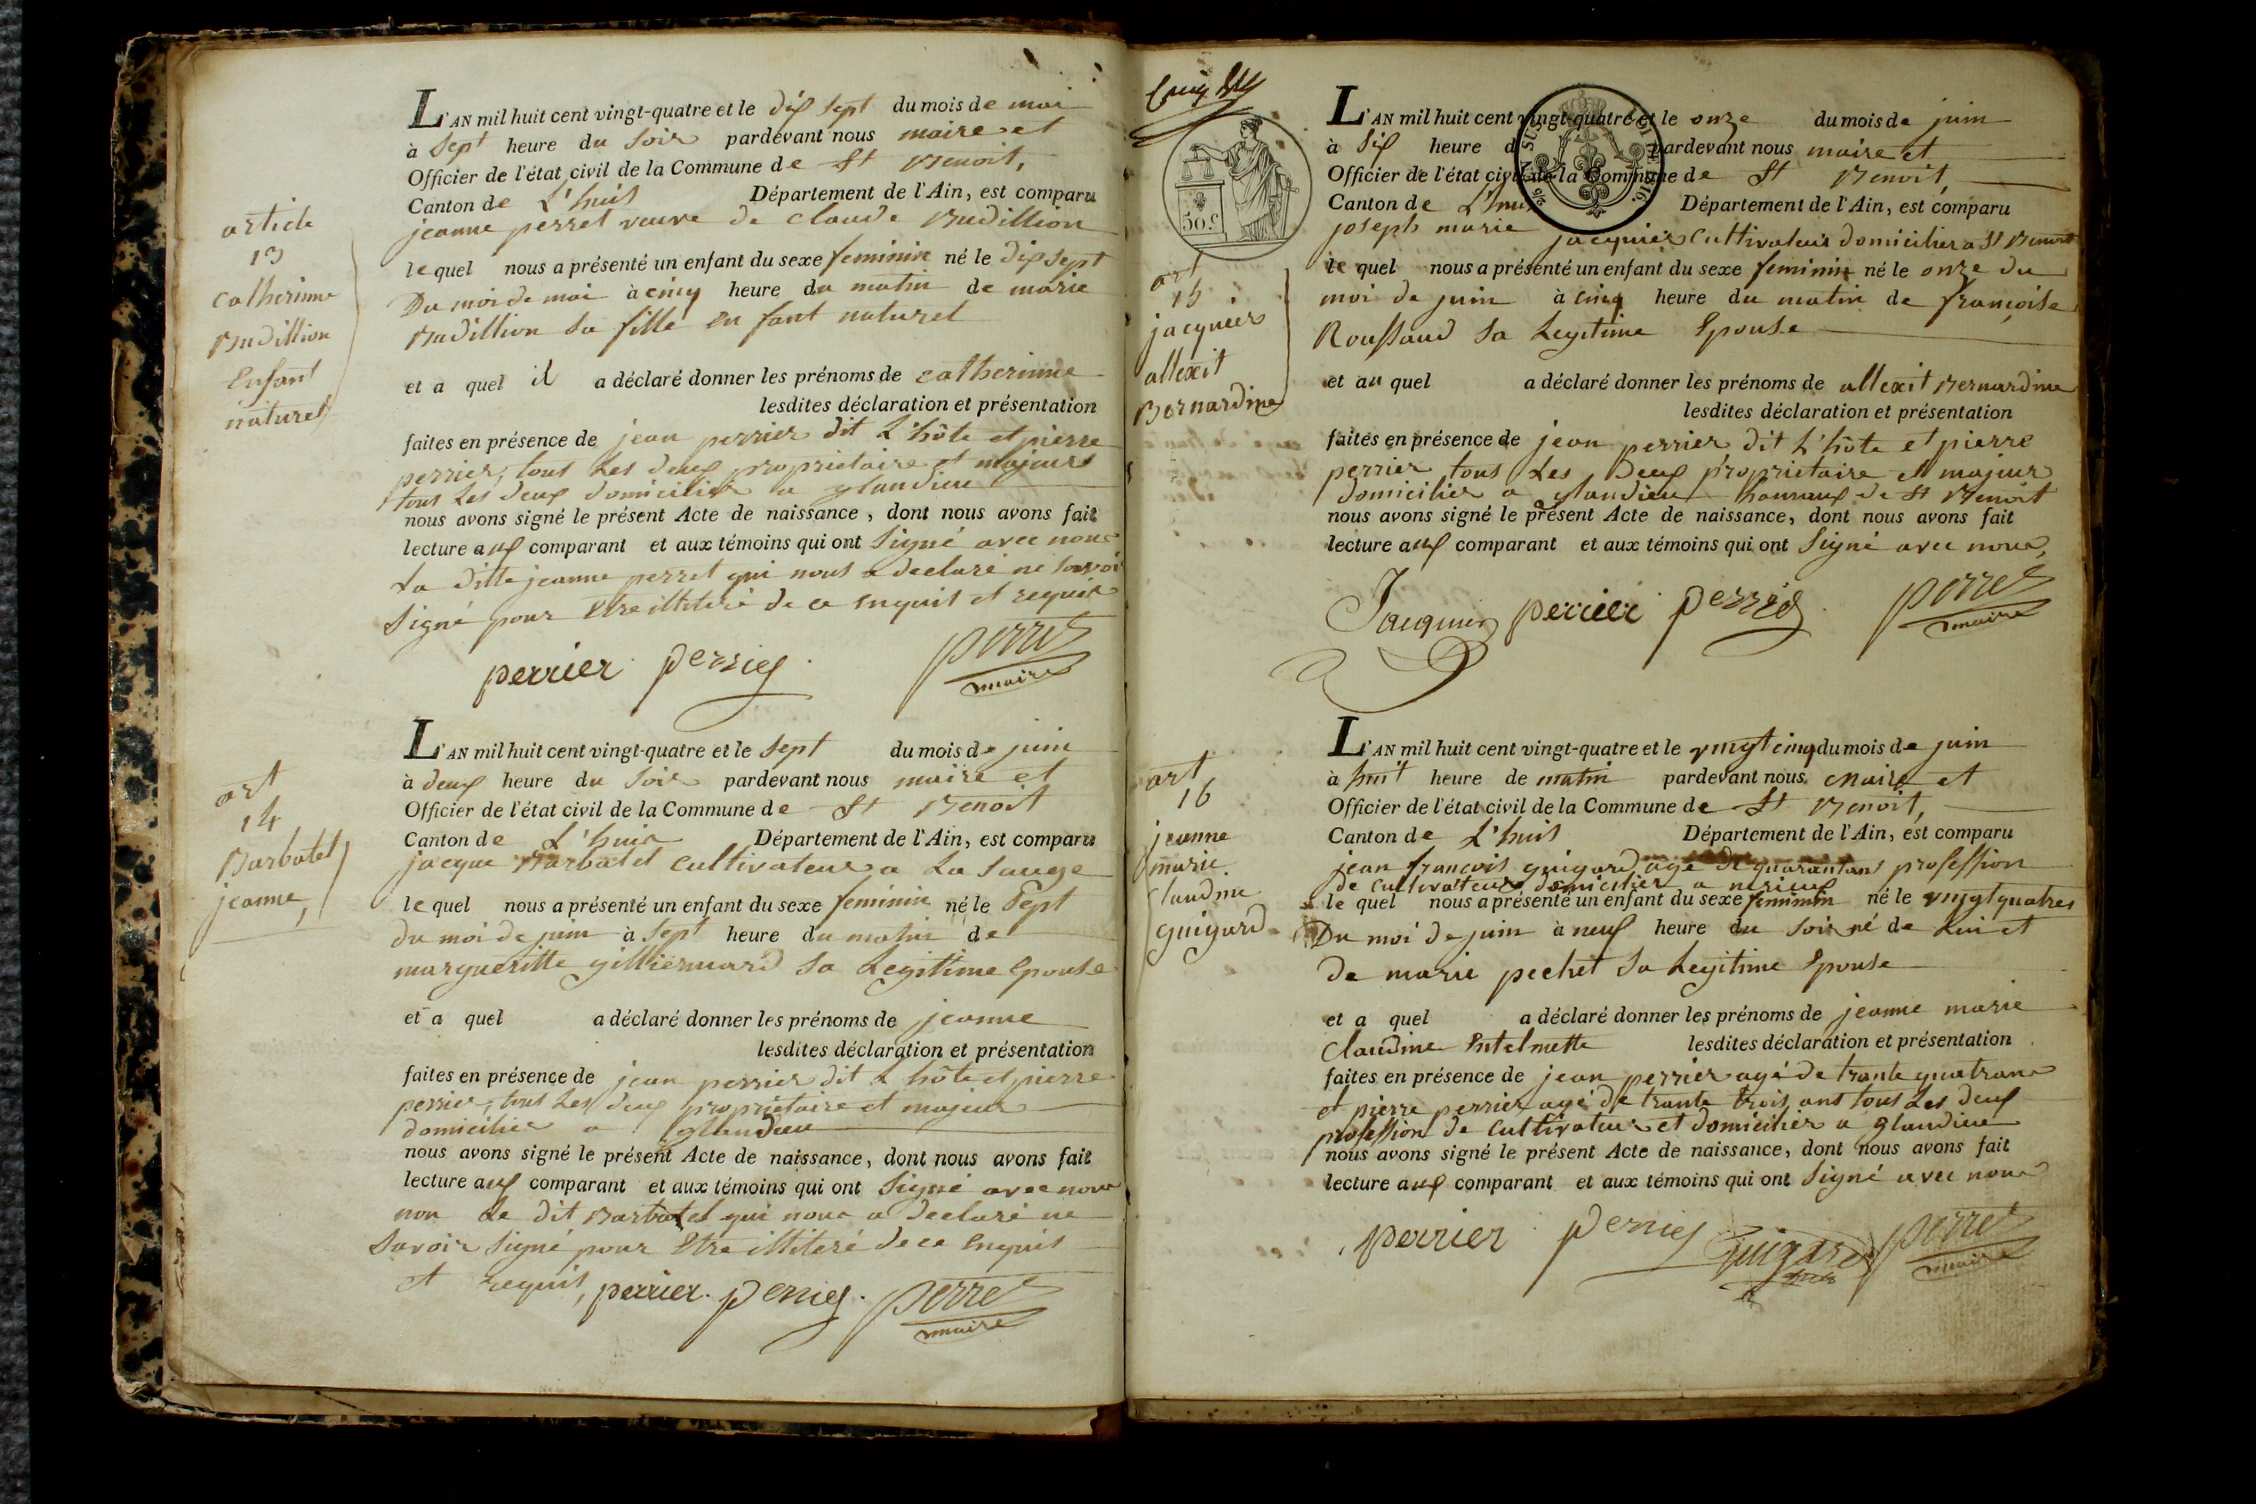 article
13
catherinne
Budillion
Enfant
naturel
L'AN mil huit cent vingt-quatre et le dix sept du mois de mai
à sept heure du soir pardevant nous maire et
Officier de l'état civil de la Commune de St Benoit,
Canton de L'huis Département de l'Ain, est comparu
jeanne perret veuve de claude Budillion
lequel nous a présenté un enfant du sexe feminin né le dix sept
Du moi de mai à cinq heure du matin de marie
Budillion sa fille en fant naturel
et a quel il a déclaré donner les prénoms de catherinne
lesdites déclaration et présentation
faites en présence de jean perrier dit L'hôte et pierre
perrier, tous Les deux proprietaire et majeurs
tous Les deux domicilier a glandieu
nous avons signé le présent Acte de naissance, dont nous avons fait
lecture aux comparant et aux témoins qui ont signé avec nous
La ditte jeanne perret qui nous a declaré ne savoir
signé pour Etre illiteré de ce Enquis et requis
perrier perrier perret
maire
art
14
Barbatet
jeanne,
L'AN mil huit cent vingt-quatre et le sept du mois de juin
à deux heure du soir pardevant nous maire et
Officier de l'état civil de la Commune de St Benoit
Canton de L'huis Département de l'Ain, est comparu
jacque Barbatet cultivateur a La Sauge
lequel nous a présenté un enfant du sexe feminin né le Sept
du moi de juin à sept heure du matin de
margueritte gilliermard sa Legitime Epouse
et a quel a déclaré donner les prénoms de jeanne
lesdites déclaration et présentation
faites en présence de jean perrier dit L hôte et pierre
perrier, tous Les deux proprietaire et majeur
domicilier a glandieu
nous avons signé le présent Acte de naissance, dont nous avons fait
lecture aux comparant et aux témoins qui ont signé avec nous
non Le dit Barbatet qui nous a declaré ne
savoir signé pour Etre illiteré de ce Enquis
et requis, perrier. perrier. perret
maire
50 c.
art
15
jacquier
allexit
Bernardine
L'AN mil huit cent vingt-quatre et le onze du mois de juin
à six heure d pardevant nous maire et
Officier de l'état civil de la Commune de St Benoit,
Canton de L'huis Département de l'Ain, est comparu
joseph marie jacquier cultivateur domicilier a St Benoit
le quel nous a présenté un enfant du sexe feminin né le onze du
moi de juin à cinq heure du matin de françoise
Roussaud sa Legitime Epouse
et au quel a déclaré donner les prénoms de allexit Bernardine
lesdites déclaration et présentation
faites en présence de jean perrier dit L'hôte et pierre
perrier tous Les Deux proprietaire et majeur
domicilier a glandieu hameaux de St Benoit
nous avons signé le présent Acte de naissance, dont nous avons fait
lecture aux comparant et aux témoins qui ont signé avec nous,
Jacquier perrier perrier perret
maire
art
16
jeanne
marie
Claudine
guigard
L'AN mil huit cent vingt-quatre et le vingt cinq du mois de juin
à huit heure de matin pardevant nous maire et
Officier de l'état civil de la Commune de St Benoit,
Canton de L'huis Département de l'Ain, est comparu
jean françois guigard agé de quarantans profession
de cultivateur domicilier a
le quel nous a présenté un enfant du sexe feminin né le vingt quatres
Du moi de juin à neuf heure du soir né de Lui et
de marie pechet sa Legitime Epouse
et a quel a déclaré donner les prénoms de jeanne marie
Claudine Entelmette lesdites déclaration et présentation
faites en présence de jean perrier agé de trante quatrans
et pierre perrier agé de trante trois ans tous Les deux
profession de cultivateur et domicilier a glandieu
nous avons signé le présent Acte de naissance, dont nous avons fait
lecture aux comparant et aux témoins qui ont signé avec nous
perrier perrier guigard perret
maire